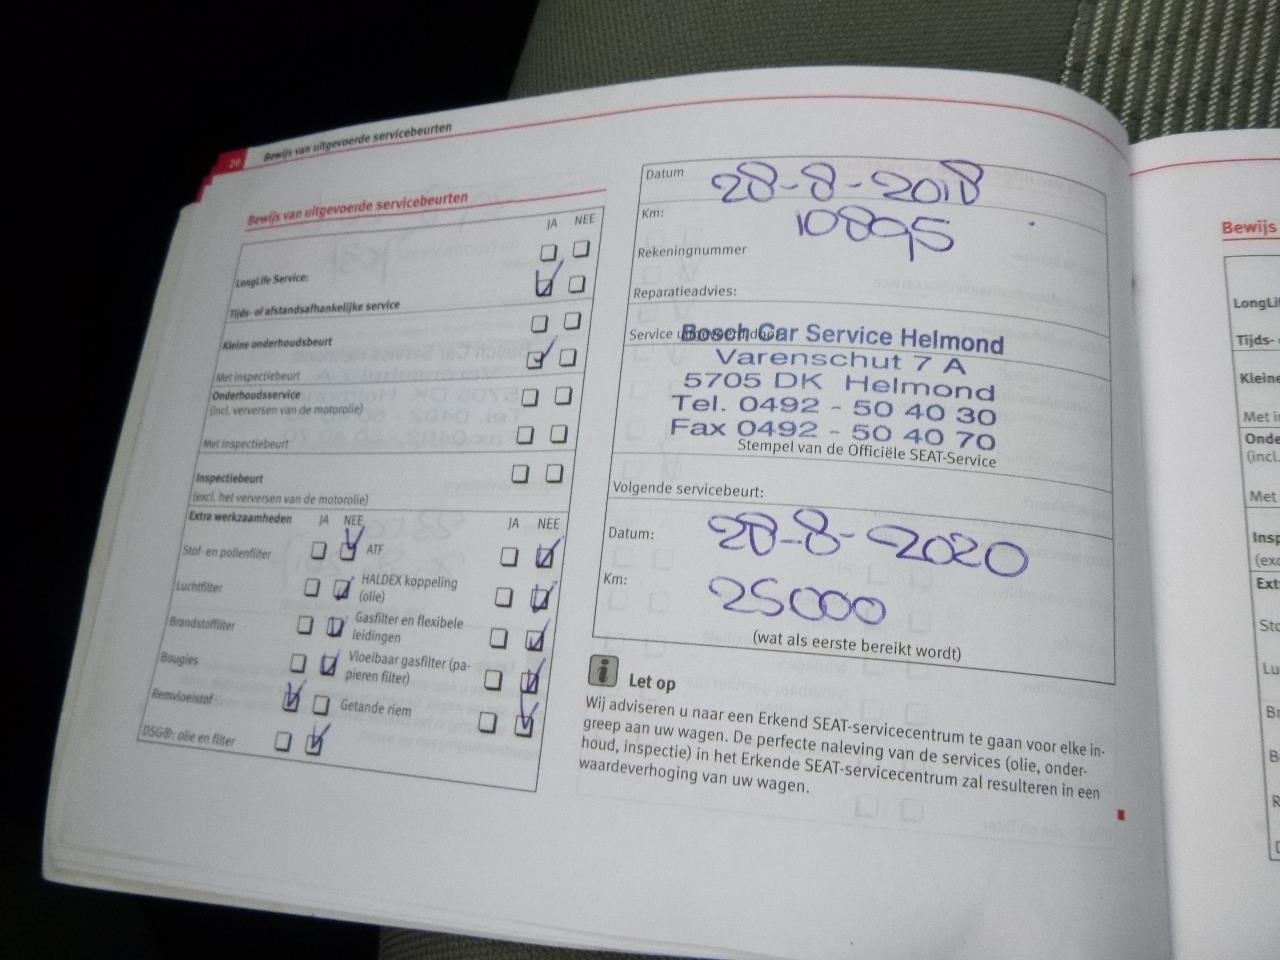 26 Bewijs van uitgevoerde servicebeurten
Bewijs van uitgevoerde servicebeurten
JA NEE
LongLife Service:
Tijds- of afstandsafhankelijke service
Kleine onderhoudsbeurt
Met inspectiebeurt
Onderhoudsservice
(incl. verversen van de motorolie)
Met inspectiebeurt
Inspectiebeurt
(excl. het verversen van de motorolie)
Extra werkzaamheden JA NEE JA NEE
Stof- en pollenfilter ATF
Luchtfilter HALDEX koppeling
(olie)
Brandstoffilter Gasfilter en flexibele
leidingen
Bougies Vloeibaar gasfilter (pa-
pieren filter)
Remvloeistof Getande riem
DSG®: olie en filter
Datum 28-8-2018
Km: 10895
Rekeningnummer
Reparatieadvies:
Service uitgevoerd door:
Bosch Car Service Helmond
Varenschut 7 A
5705 DK Helmond
Tel. 0492 - 50 40 30
Fax 0492 - 50 40 70
Stempel van de Officiële SEAT-Service
Volgende servicebeurt:
Datum: 28-8-2020
Km: 25000
(wat als eerste bereikt wordt)
i Let op
Wij adviseren u naar een Erkend SEAT-servicecentrum te gaan voor elke in-
greep aan uw wagen. De perfecte naleving van de services (olie, onder-
houd, inspectie) in het Erkende SEAT-servicecentrum zal resulteren in een
waardeverhoging van uw wagen.
Bewijs
LongLi
Tijds-
Kleine
Met i
Onde
(incl.
Met
Insp
(exc
Ext
Sto
Lu